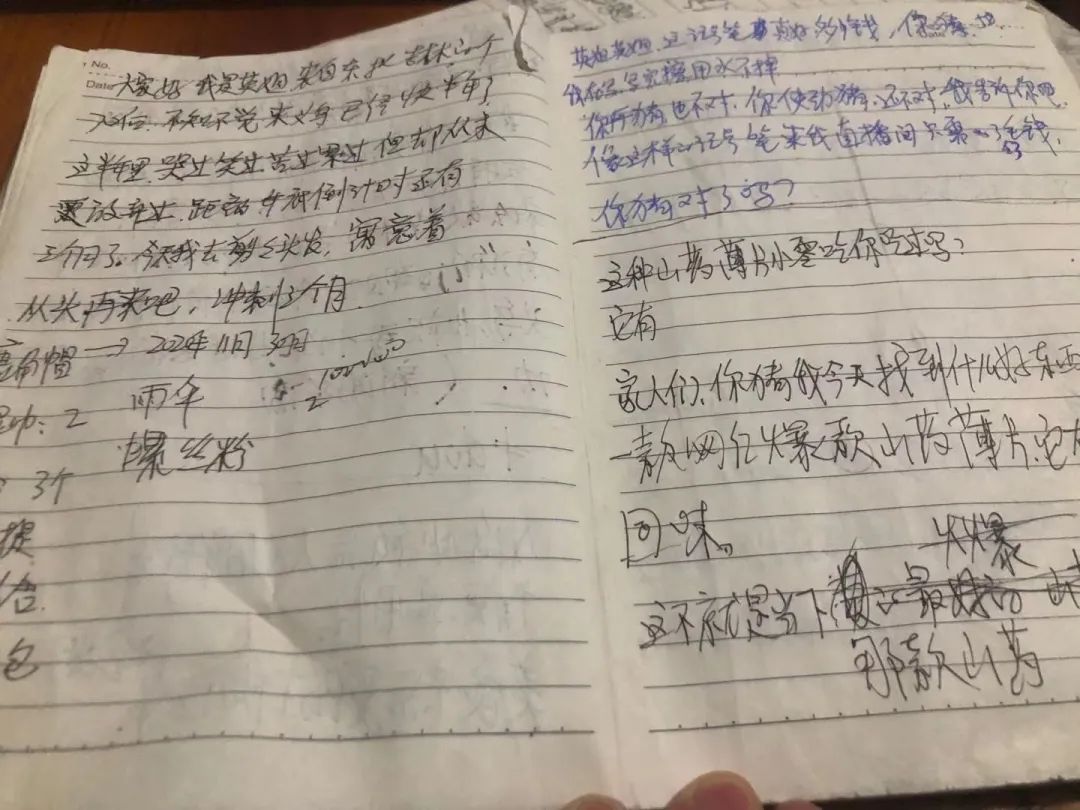 No.
Date
大家好 我是英姐 来自东北 吉林的一个
不知不觉来义乌已经快半年了
这半年里 哭过笑过苦过累过 但却从未
放弃过. 距离年底倒计时还有
三个月了. 今天我去剪了头发, 寓意着
从头再来吧, 冲刺3个月
帽 → 2020年11月30日
雨伞
2
螺丝粉
3个
提
包
英姐英姐 这记号笔 多少钱, 你猜
用水不掉
你再猜 也不对. 你使劲猜. 还不对. 我告诉你吧.
像这样的记号笔 来我直播间只需 钱
你猜对了吗?
这种山药薄片小零吃你吃过吗?
它有
家人们. 你猜我今天找到什么好东西
一款网红火爆款山药薄片它
回味.
火爆
这不就是当下 最
那款山药